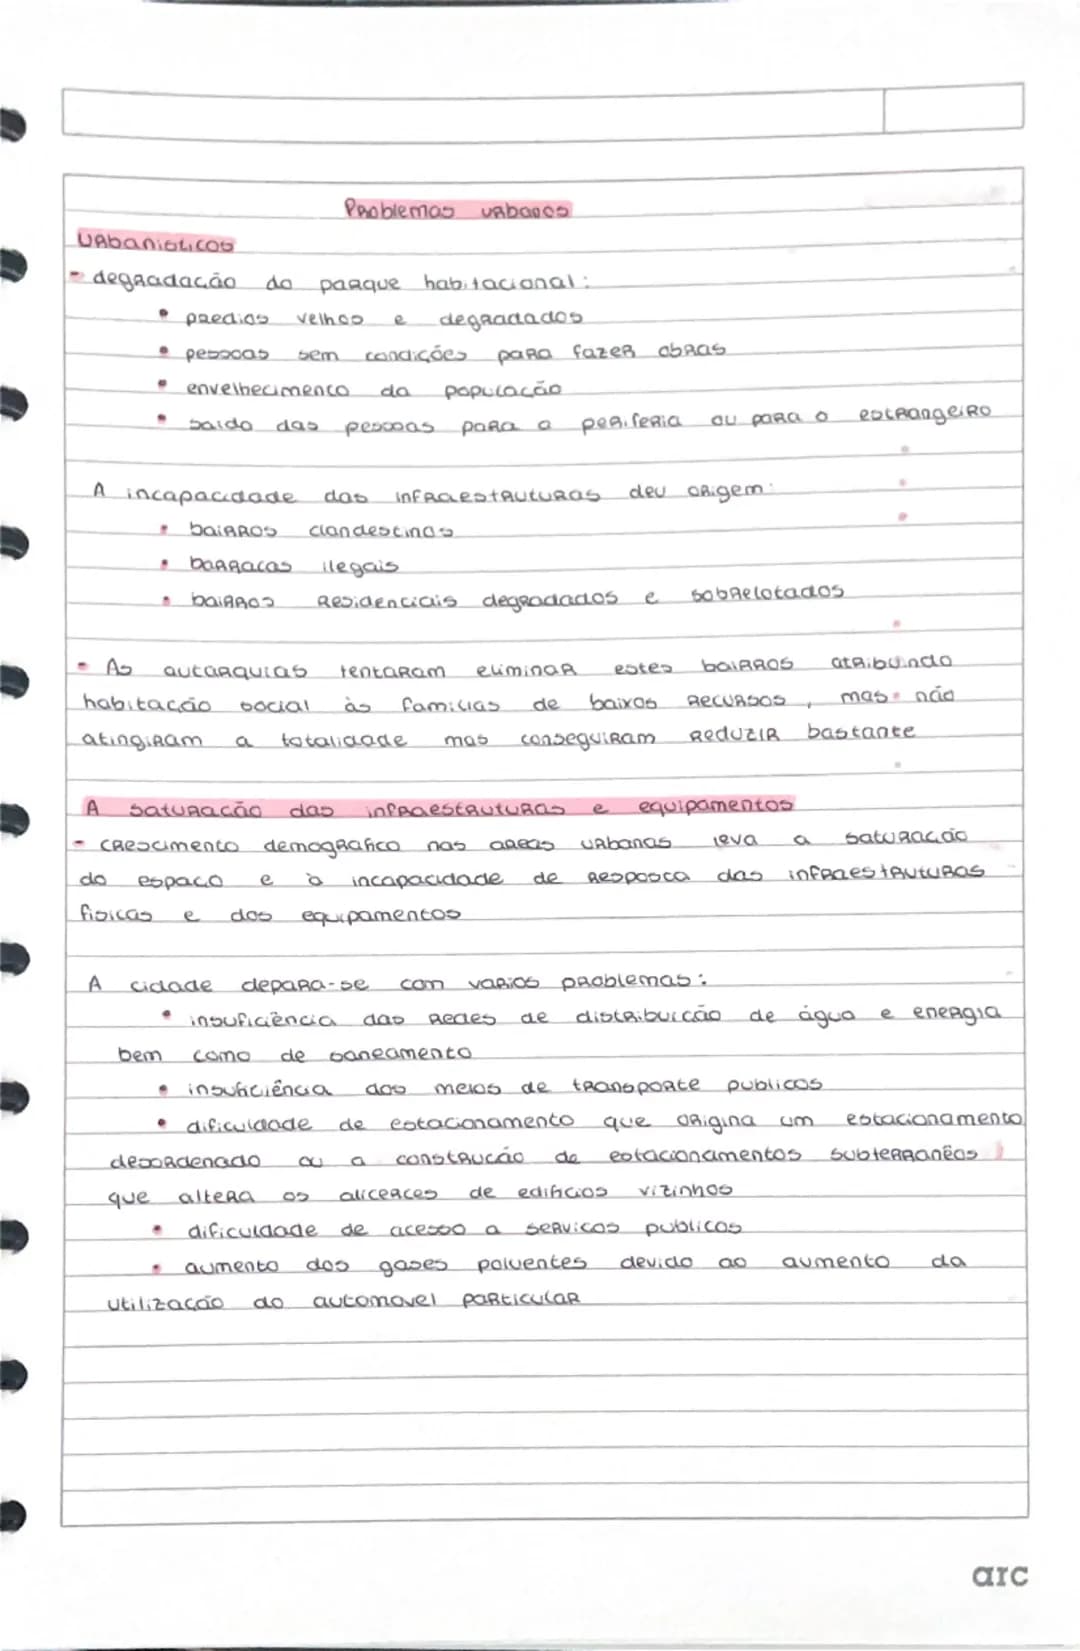 Problemas urbanos
Urbanisticos
- degradação do parque habitacional:
• predios velhos e degradados
• pessoas sem condições para fazer obras
• envelhecimento da população
• saida das pessoas para a periferia ou para o estrangeiro
A incapacidade das infraestruturas deu origem:
• bairros clandestinos
• barracas ilegais
• bairros residenciais degradados e sobrelotados
- As autarquias tentaram eliminar estes bairros atribuindo
habitação social às familias de baixos recursos, mas não
atingiram a totalidade mas conseguiram reduzir bastante
A saturação das infraestruturas e equipamentos
- crescimento demografico nas areas urbanas leva a saturação
do espaço e à incapacidade de resposta das infraestruturas
fisicas e dos equipamentos
A cidade depara-se com varios problemas:
• insuficiência das redes de distribuição de água e energia
bem como de saneamento
• insuficiência dos meios de transporte publicos
• dificuldade de estacionamento que origina um estacionamento
desordenado ou a construção de estacionamentos subterranêos
que altera os alicerces de edificios vizinhos
• dificuldade de acesso a serviços publicos
• aumento dos gases poluentes devido ao aumento da
utilização do automovel particular
arc